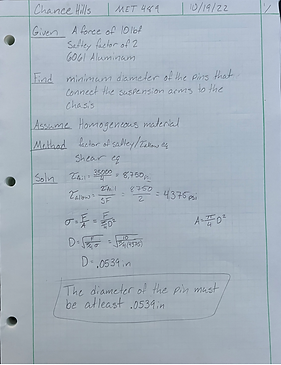 Chance Hills MET 489 10/19/22 1/
Given A force of 10 lbf
Saftey factor of 2
6061 Aluminum
Find minimum diameter of the pins that
connect the suspension arms to the
chasis
Assume Homogeneous material
Method factor of saftey/τallow eq
shear eq
Soln τ = = 8,750
τallow = /SF = 8750/2 = 4375 psi
σ = F/A = F/(π/4 D²) A = π/4 D²
D = √(F/(π/4 σ)) = √(10/(π/4(4375)))
D = .0539 in
The diameter of the pin must
be atleast .0539 in